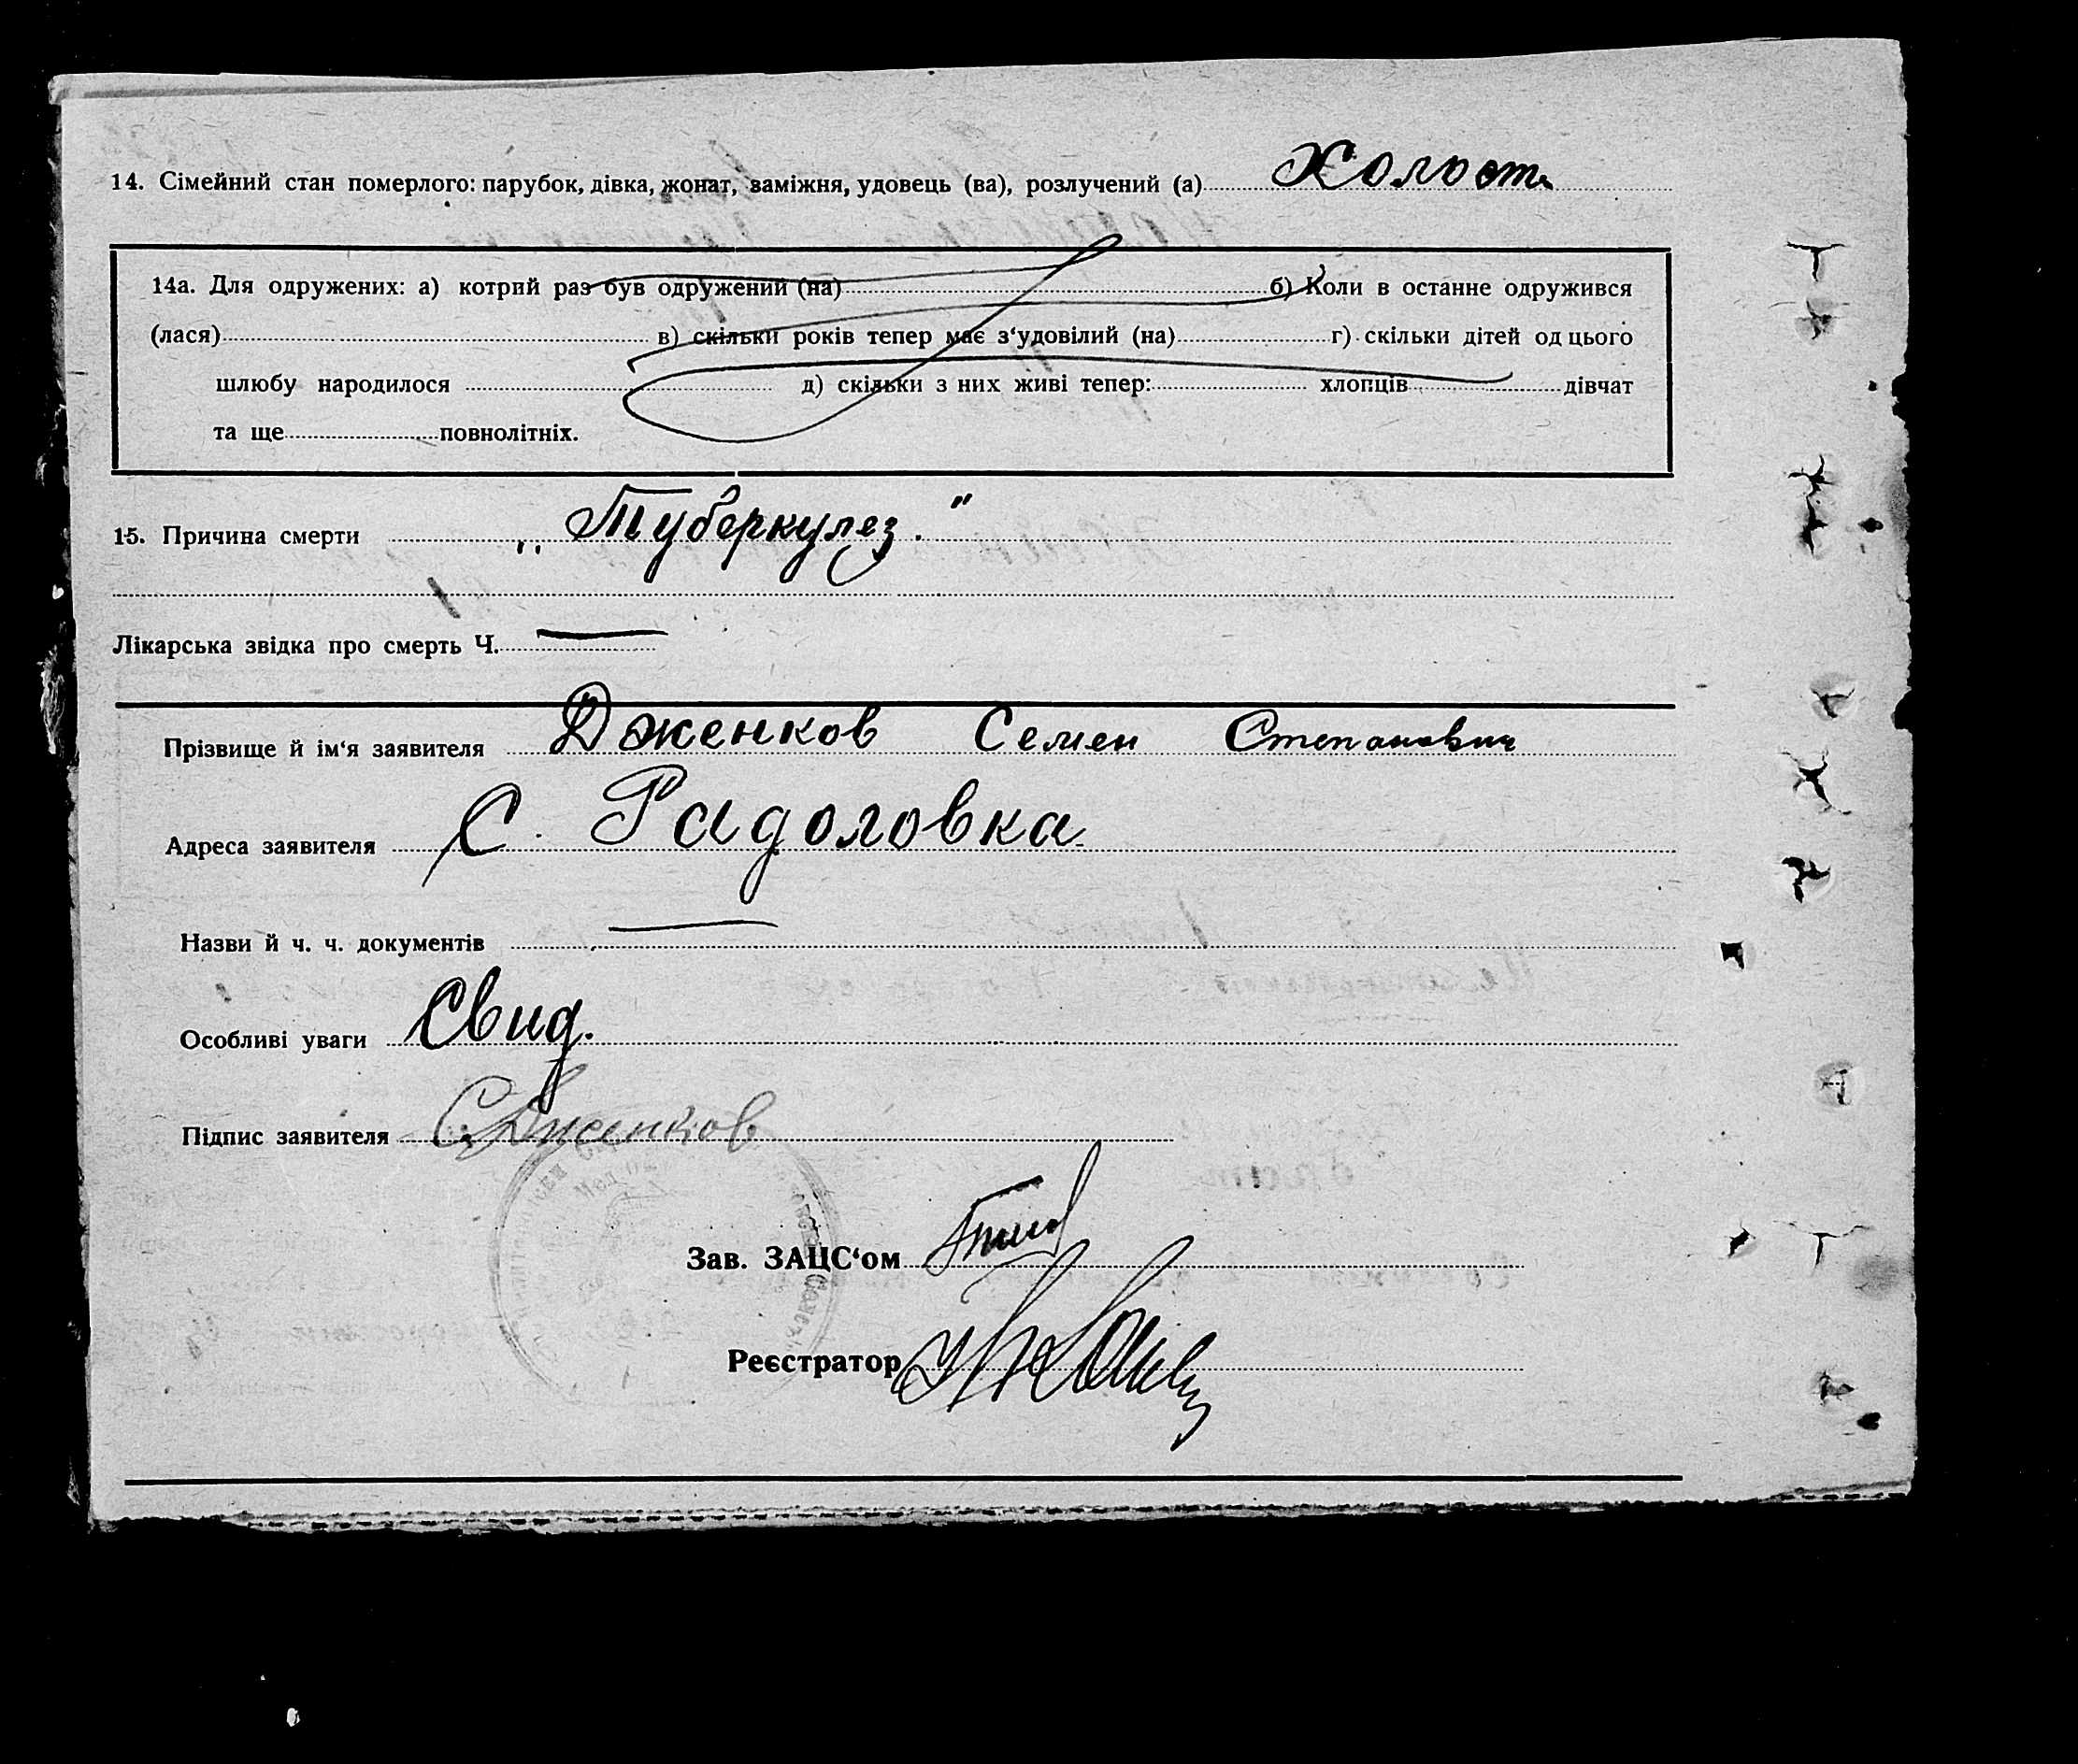 14. Сімейний стан померлого: парубок, дівка, жонат, заміжня, удовець (ва), розлучений (а) Холост
14а. Для одружених: а) котрий раз був одружений (на) б) Коли в останне одружився
(лася) в) скільки років тепер має з‘удовілий (на) г) скільки дітей од цього
шлюбу народилося д) скільки з них живі тепер: хлопців дівчат
та ще повнолітніх.
15. Причина смерти „Туберкулез."
Лікарська звідка про смерть Ч. —
Прізвище й ім‘я заявителя Дженков Семен Степанович
Адреса заявителя С. Радоловка
Назви й ч. ч. документів —
Особливі уваги Свид.
Підпис заявителя С. Дженков
Зав. ЗАЦС‘ом
Реєстратор